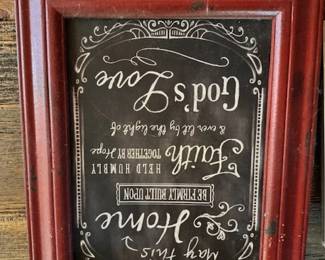 May this
Home
BE FIRMLY BUILT UPON
Faith
HELD HUMBLY
TOGETHER BY Hope
& ever lit by the light of
God's Love